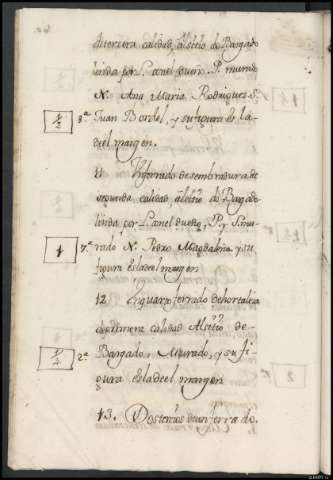 detercera calidad, al sitio do Bargado
linda por L. con el dueño P. murado
N. Ana Maria Rodriguez S.
½ 3.ª Juan Bordel, y su figura es la
del margen.
11 Un ferrado de sembradura de
segunda calidad, al sitio do Bargado
linda por L. con el dueño, P. y S. mu-
1 7.ª rado N. Pedro Magdalena y su
figura es la del margen
12. Un quarto ferrado de hortaliza
de primera calidad al sitio de
¼ 2.ª Bargado, Murado, y su fi-
gura es la del margen
13. Dos tercios de un ferrado